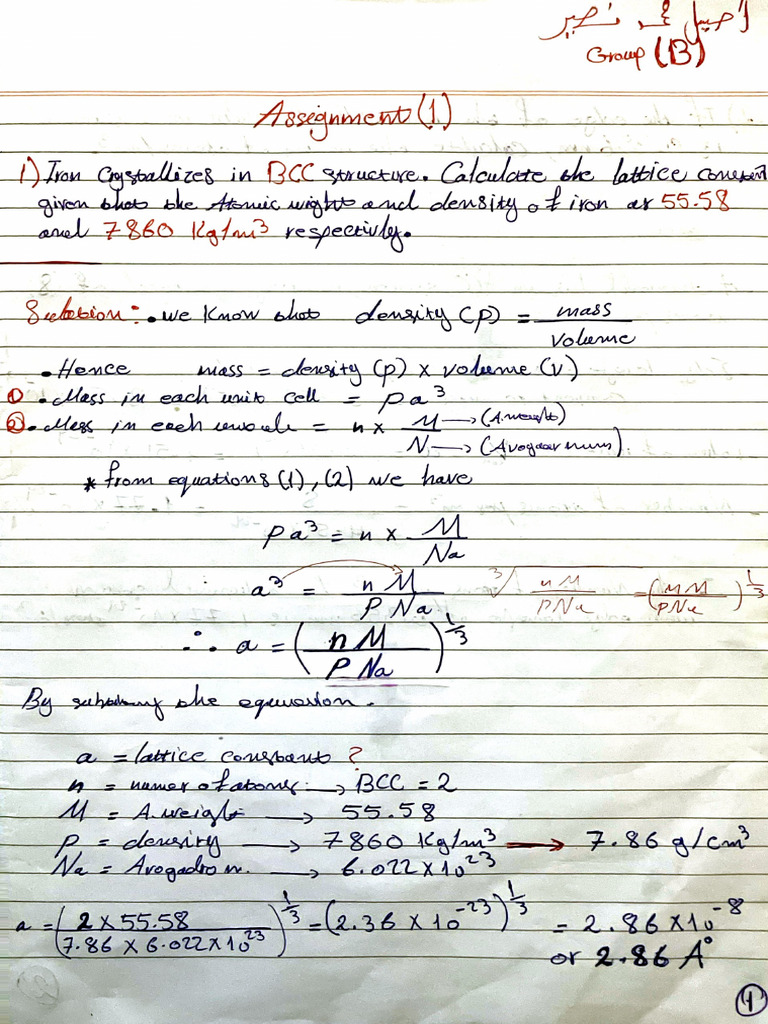 أصيل محمد نصير
Group (B)
Assignment (1)
1) Iron Crystallizes in BCC structure. Calculate the lattice constent
given that the Atomic wight and density of iron as 55.58
and 7860 Kg/m³ respectivly.
Solution: • we know that density (ρ) = mass / volume
• Hence mass = density (ρ) × volume (v)
① • Mass in each unit cell = ρ a³
② • Mass in each = n × M/N → (A.weight) → (Avogadr num).
* from equations (1), (2) we have
ρ a³ = n × M/Na
a³ = n M / ρ Na ³√(n M / ρ Na) = (n M / ρ Na)^1/3
∴ a = (n M / ρ Na)^1/3
By the equation.
a = lattice constant ?
n = numer of atoms → BCC = 2
M = A.weight → 55.58
ρ = density → 7860 Kg/m³ → 7.86 g/cm³
Na = Avogadro n. → 6.022 × 10²³
a = (2 × 55.58 / 7.86 × 6.022 × 10²³)^1/3 = (2.36 × 10⁻²³)^1/3 = 2.86 × 10⁻⁸
or 2.86 A°
1